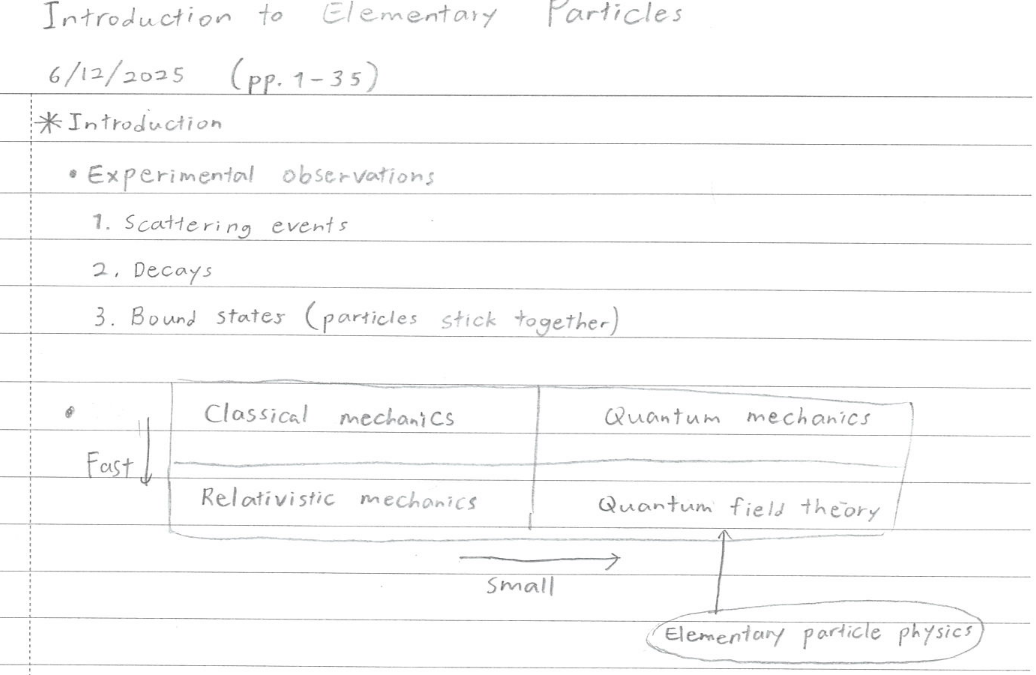 Introduction to Elementary Particles
6/12/2025 (pp. 1-35)
* Introduction
• Experimental observations
1. Scattering events
2. Decays
3. Bound states (particles stick together)
• Classical mechanics Quantum mechanics
Fast
Relativistic mechanics Quantum field theory
Small
Elementary particle physics